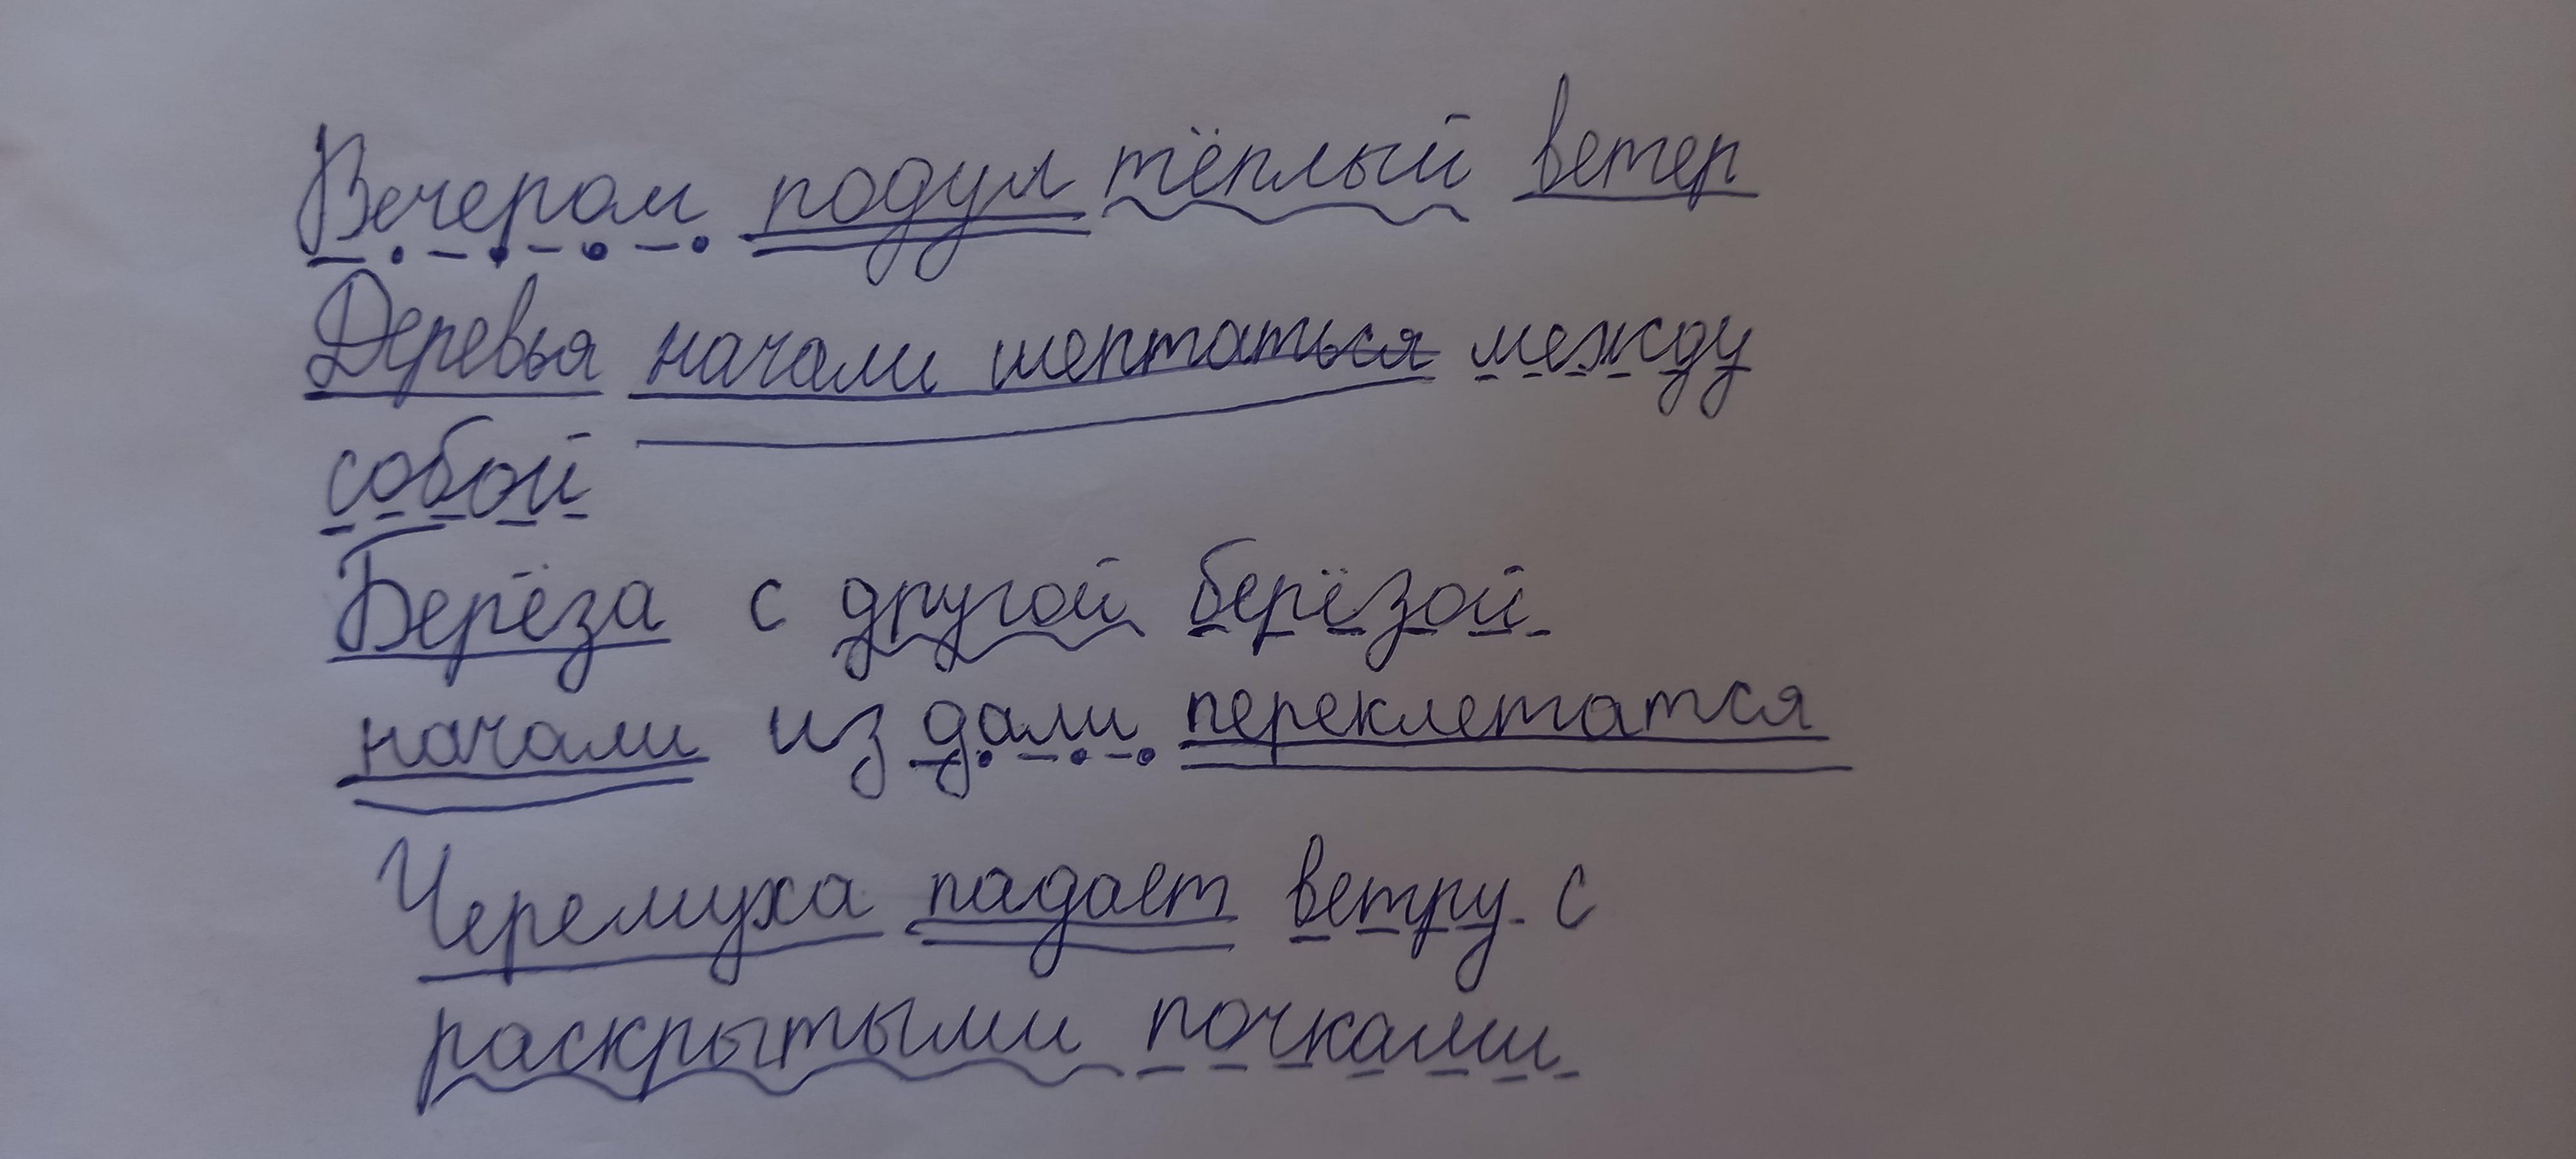 Вечером подул тёплый ветер
Деревья начали шептаться между
собой
Берёза с другой берёзой
начали из дали переклетатся
Черемуха падает ветру с
раскрытыми почками